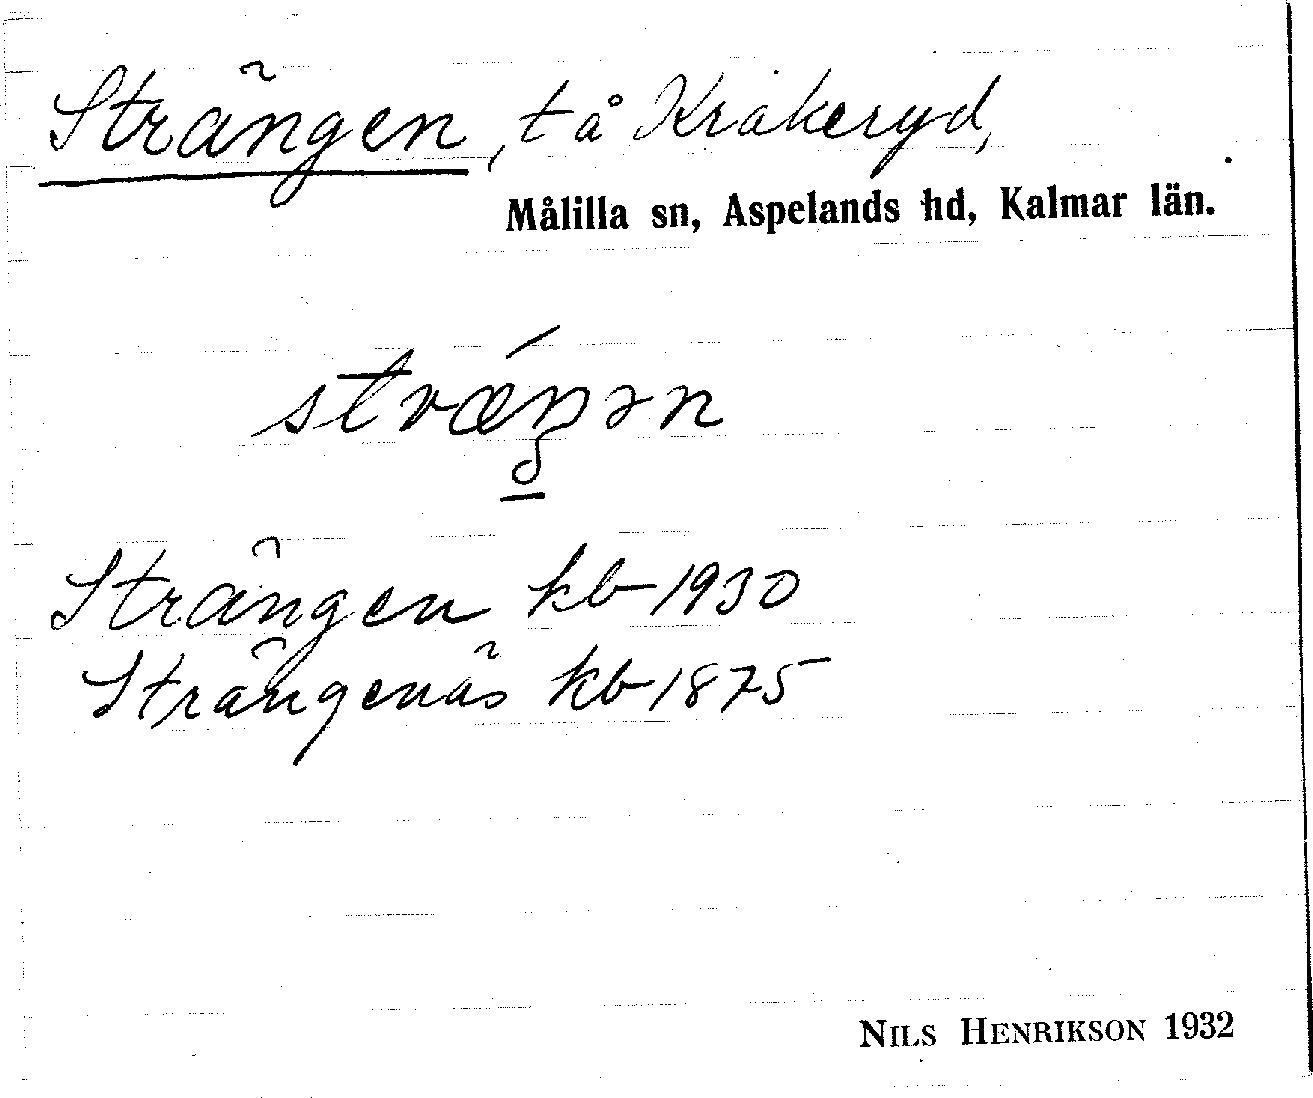 Strängen, t å Kråkeryd,
Målilla sn, Aspelands hd, Kalmar län.
strǽŋən
Strängen kb 1930
Strängenäs kb 1875
NILS HENRIKSON 1932